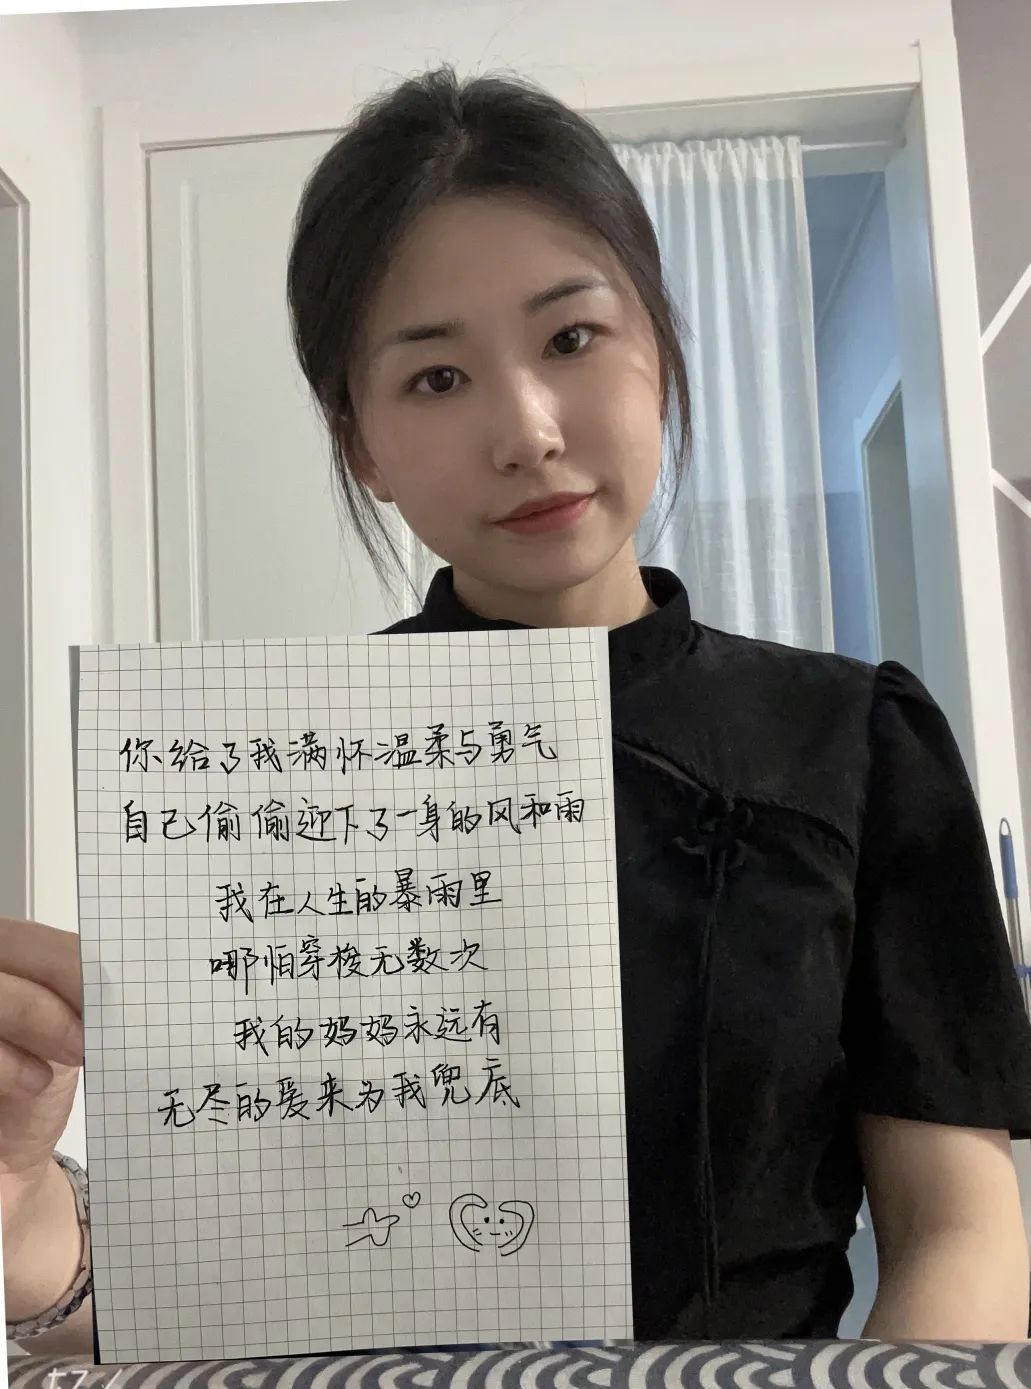 你给了我满怀温柔与勇气
自己偷偷迎下了一身的风和雨
我在人生的暴雨里
哪怕穿梭无数次
我的妈妈永远有
无尽的爱来为我兜底